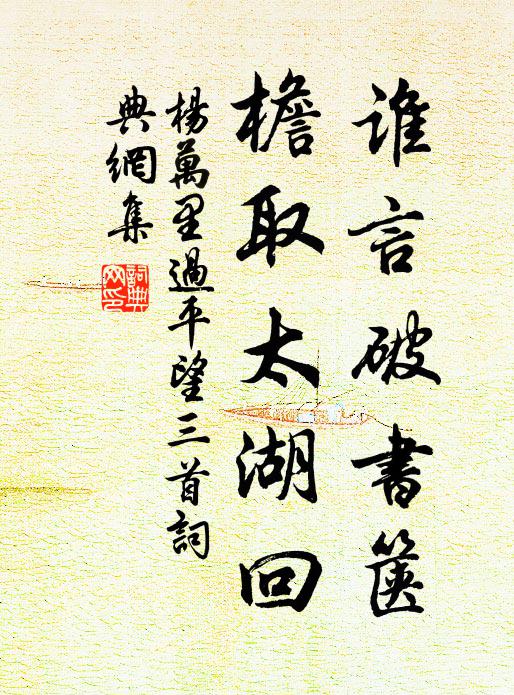 谁言破書篋
檐取太湖回
楊萬里過平望三首詞
典網集
詞典网印